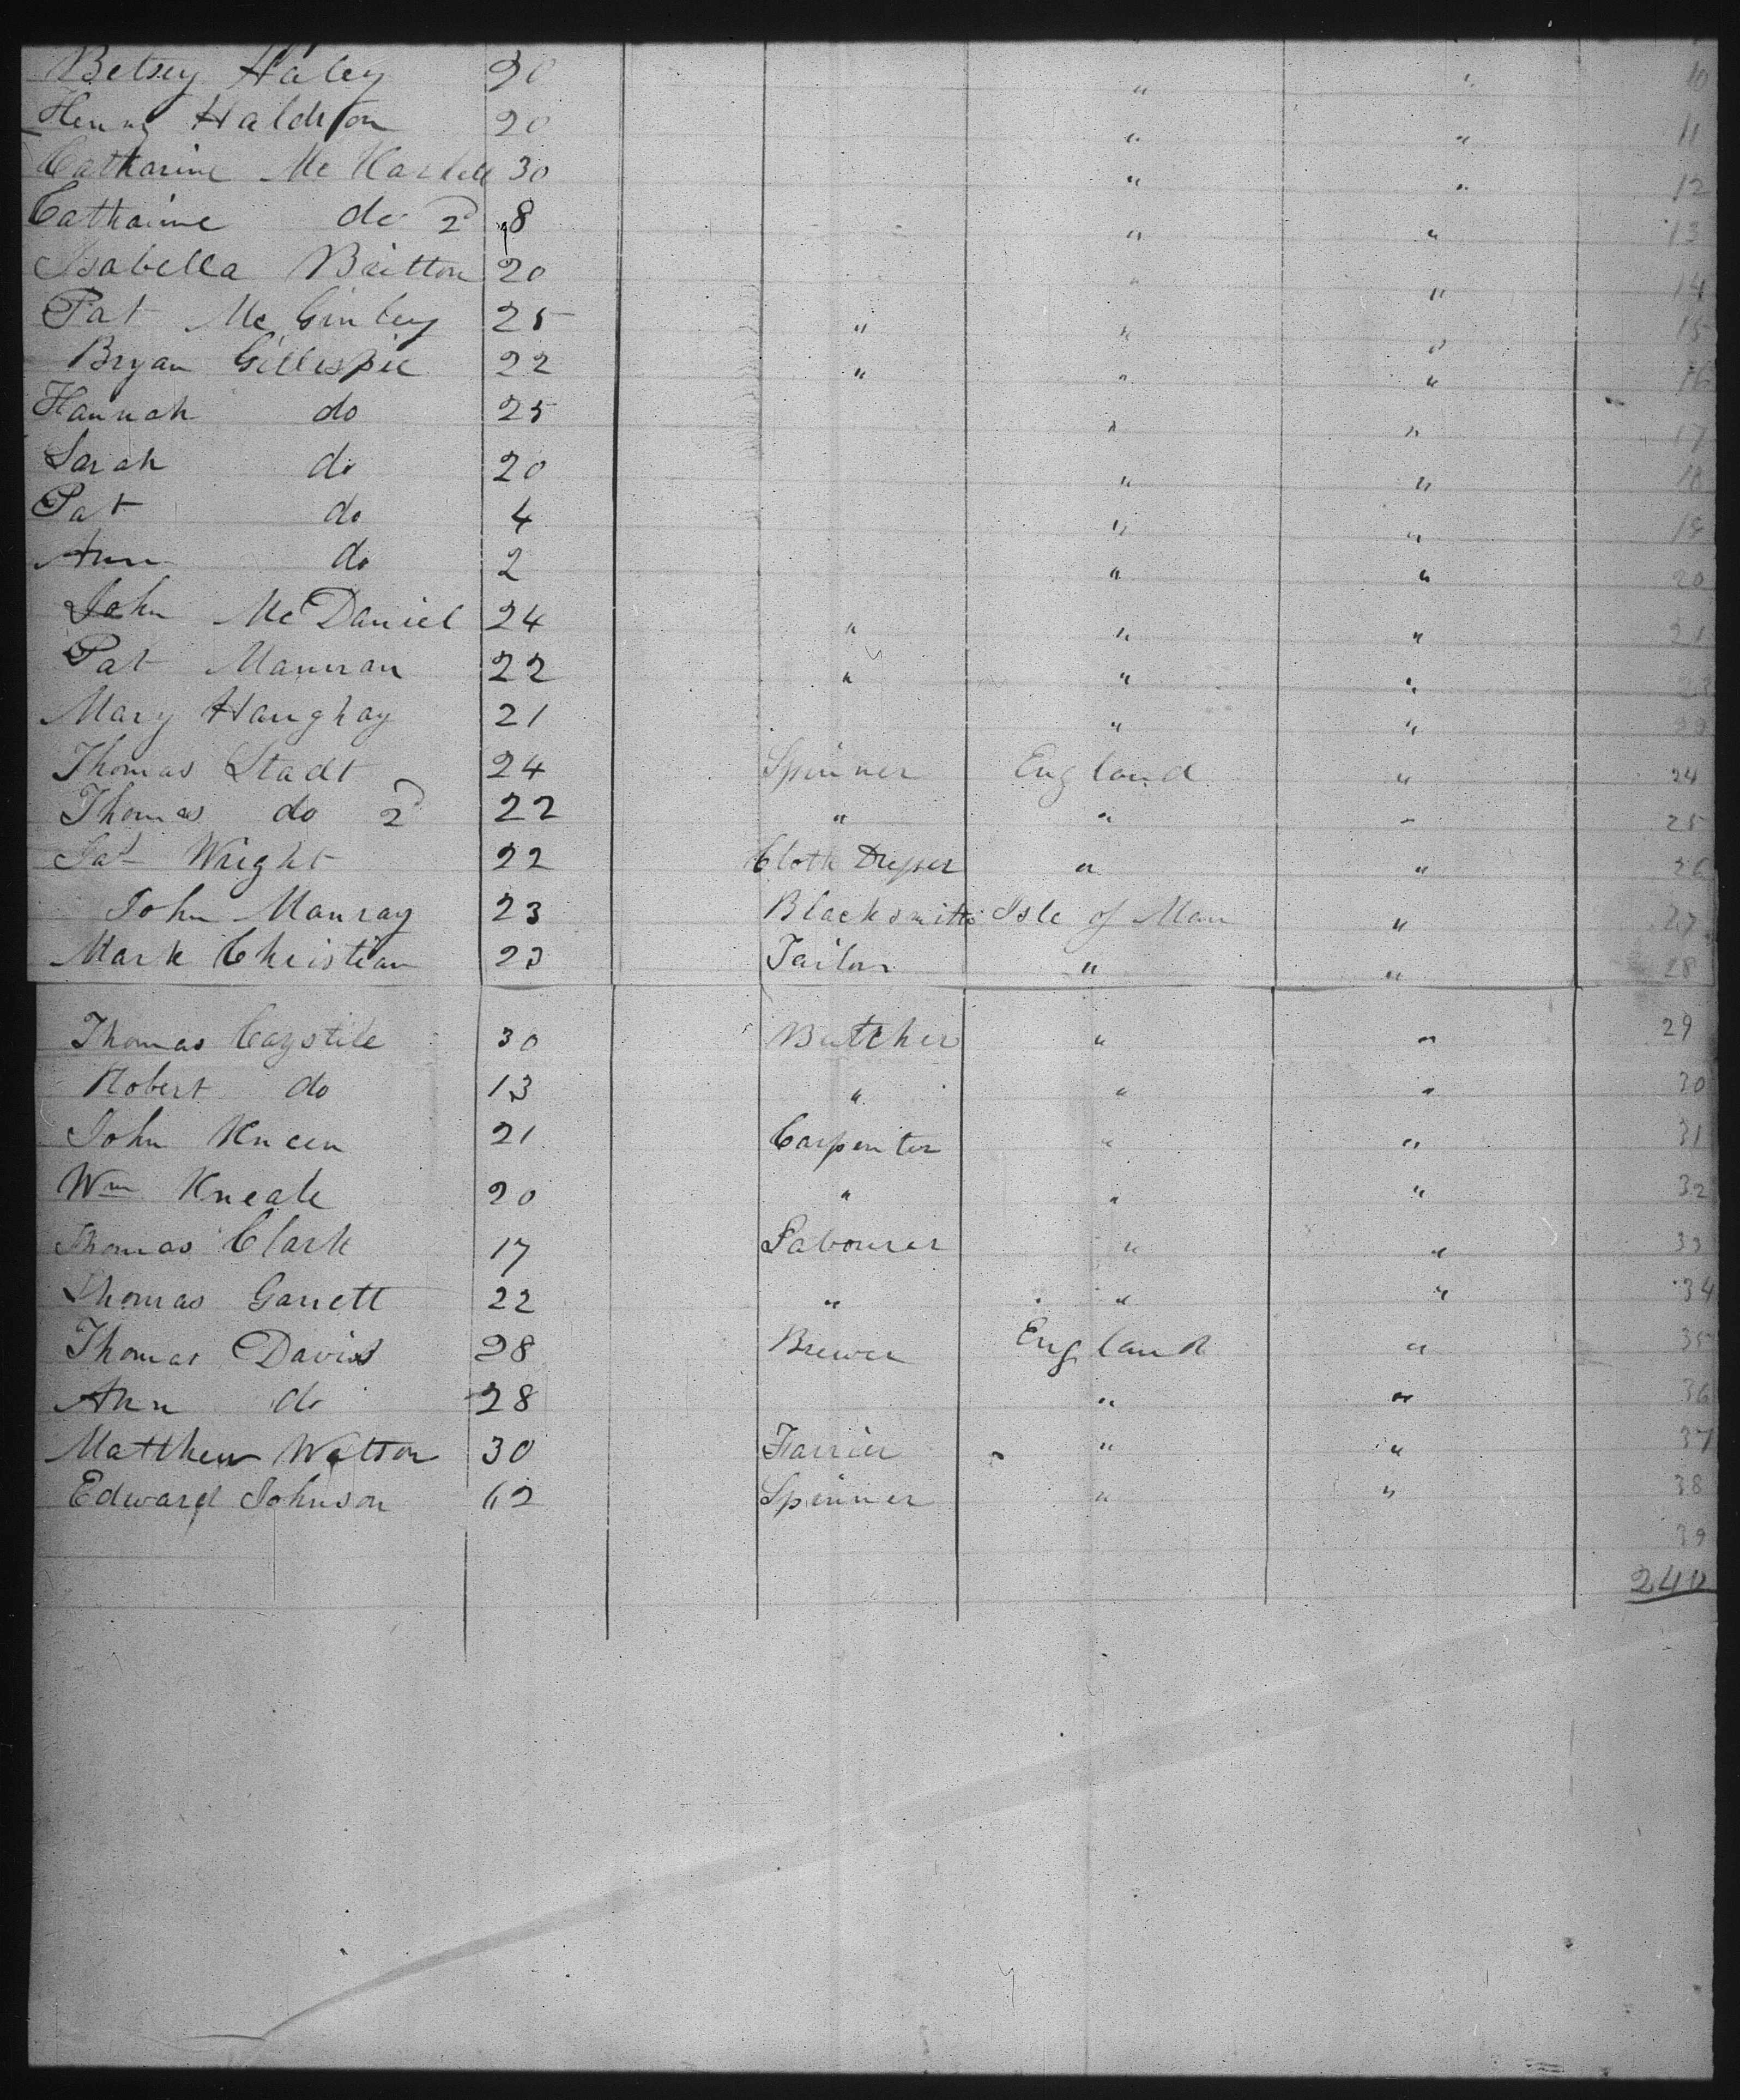 Betsey Haley 20 " " 10
Henry Haldston 20 " " 11
Catharine Mc 30 " " 12
Catharine do 2d 8 " " 13
Isabella Britton 20 " " 14
Pat McGinley 25 " " " 15
Bryan Gillespie 22 " " " 16
Hannah do 25 " " 17
Sarah do 20 " " 18
Pat do 4 " " 19
Ann do 2 " " 20
John McDaniel 24 " " " 21
Pat 22 " " "
Mary Haughay 21 " " 23
Thomas Stadt 24 Spinner England " 24
Thomas do 2d 22 " " " 25
Pat Wright 22 Cloth Dresser " " 26
John Manray 23 Blacksmith Isle of Man " 27
Mark Christian 23 Tailor " " 28
Thomas Caystile 30 Butcher " " 29
Robert do 13 " " " 30
John Kneen 21 Carpenter " " 31
Wm Kneale 20 " " " 32
Thomas Clark 17 Labourer " " 33
Thomas Garrett 22 " " " 34
Thomas Davis 28 Brewer England " 35
Ann do 28 " " 36
Matthew Watson 30 Farrier " " 37
Edward Johnson 62 Spinner " " 38
39
240